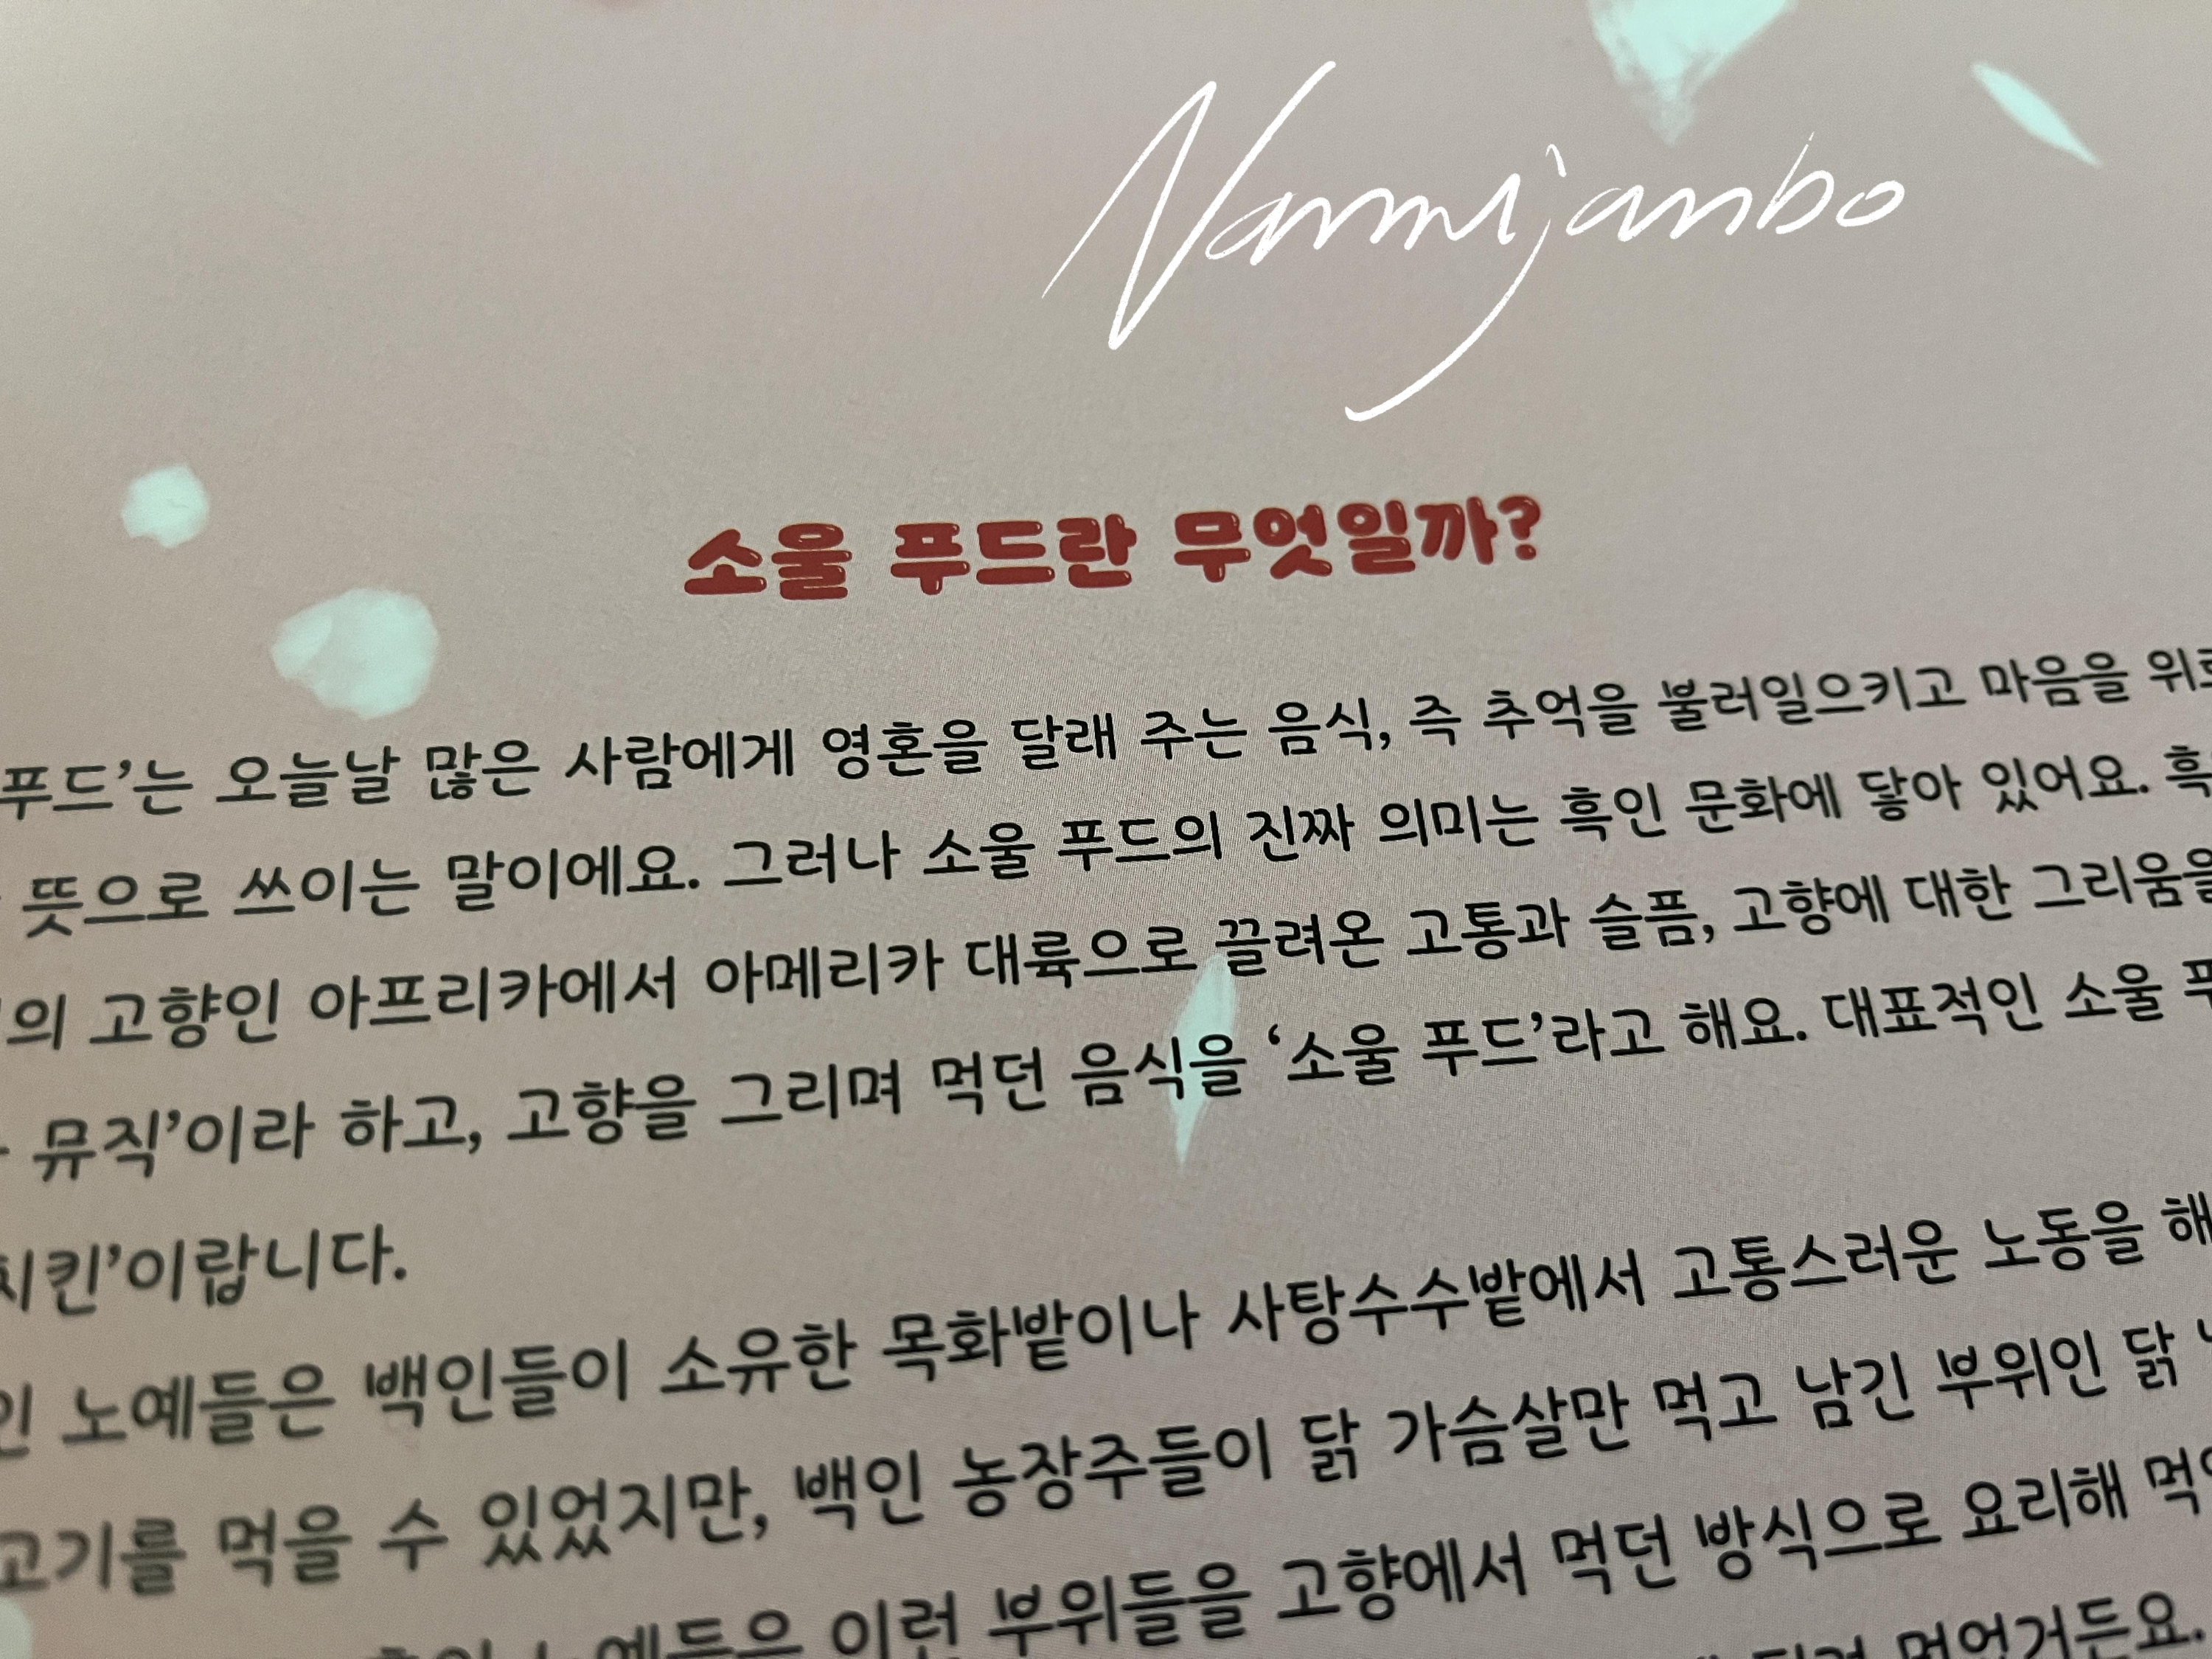 Nammijanbo
소울 푸드란 무엇일까?
푸드’는 오늘날 많은 사람에게 영혼을 달래 주는 음식, 즉 추억을 불러일으키고 마음을
뜻으로 쓰이는 말이에요. 그러나 소울 푸드의 진짜 의미는 흑인 문화에 닿아 있어요.
의 고향인 아프리카에서 아메리카 대륙으로 끌려온 고통과 슬픔, 고향에 대한 그리움을
뮤직’이라 하고, 고향을 그리며 먹던 음식을 ‘소울 푸드’라고 해요. 대표적인 소울
치킨’이랍니다.
노예들은 백인들이 소유한 목화밭이나 사탕수수밭에서 고통스러운 노동을
고기를 먹을 수 있었지만, 백인 농장주들이 닭 가슴살만 먹고 남긴 부위인 닭
이런 부위들을 고향에서 먹던 방식으로 요리해
먹었거든요.